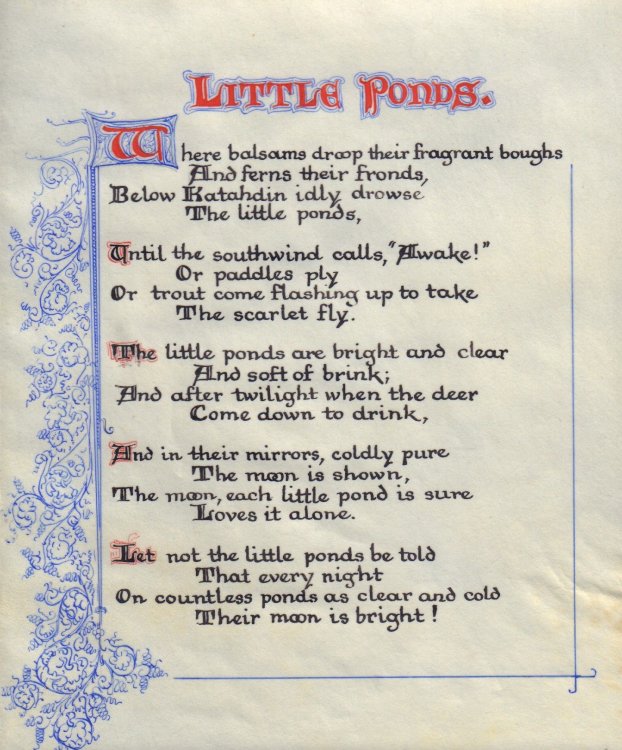 LITTLE PONDS.
Where balsams droop their fragrant boughs
And ferns their fronds,
Below Katahdin idly drowse
The little ponds,
Until the southwind calls, "Awake!"
Or paddles ply
Or trout come flashing up to take
The scarlet fly.
The little ponds are bright and clear
And soft of brink;
And after twilight when the deer
Come down to drink,
And in their mirrors, coldly pure
The moon is shown,
The moon, each little pond is sure
Loves it alone.
Let not the little ponds be told
That every night
On countless ponds as clear and cold
Their moon is bright!